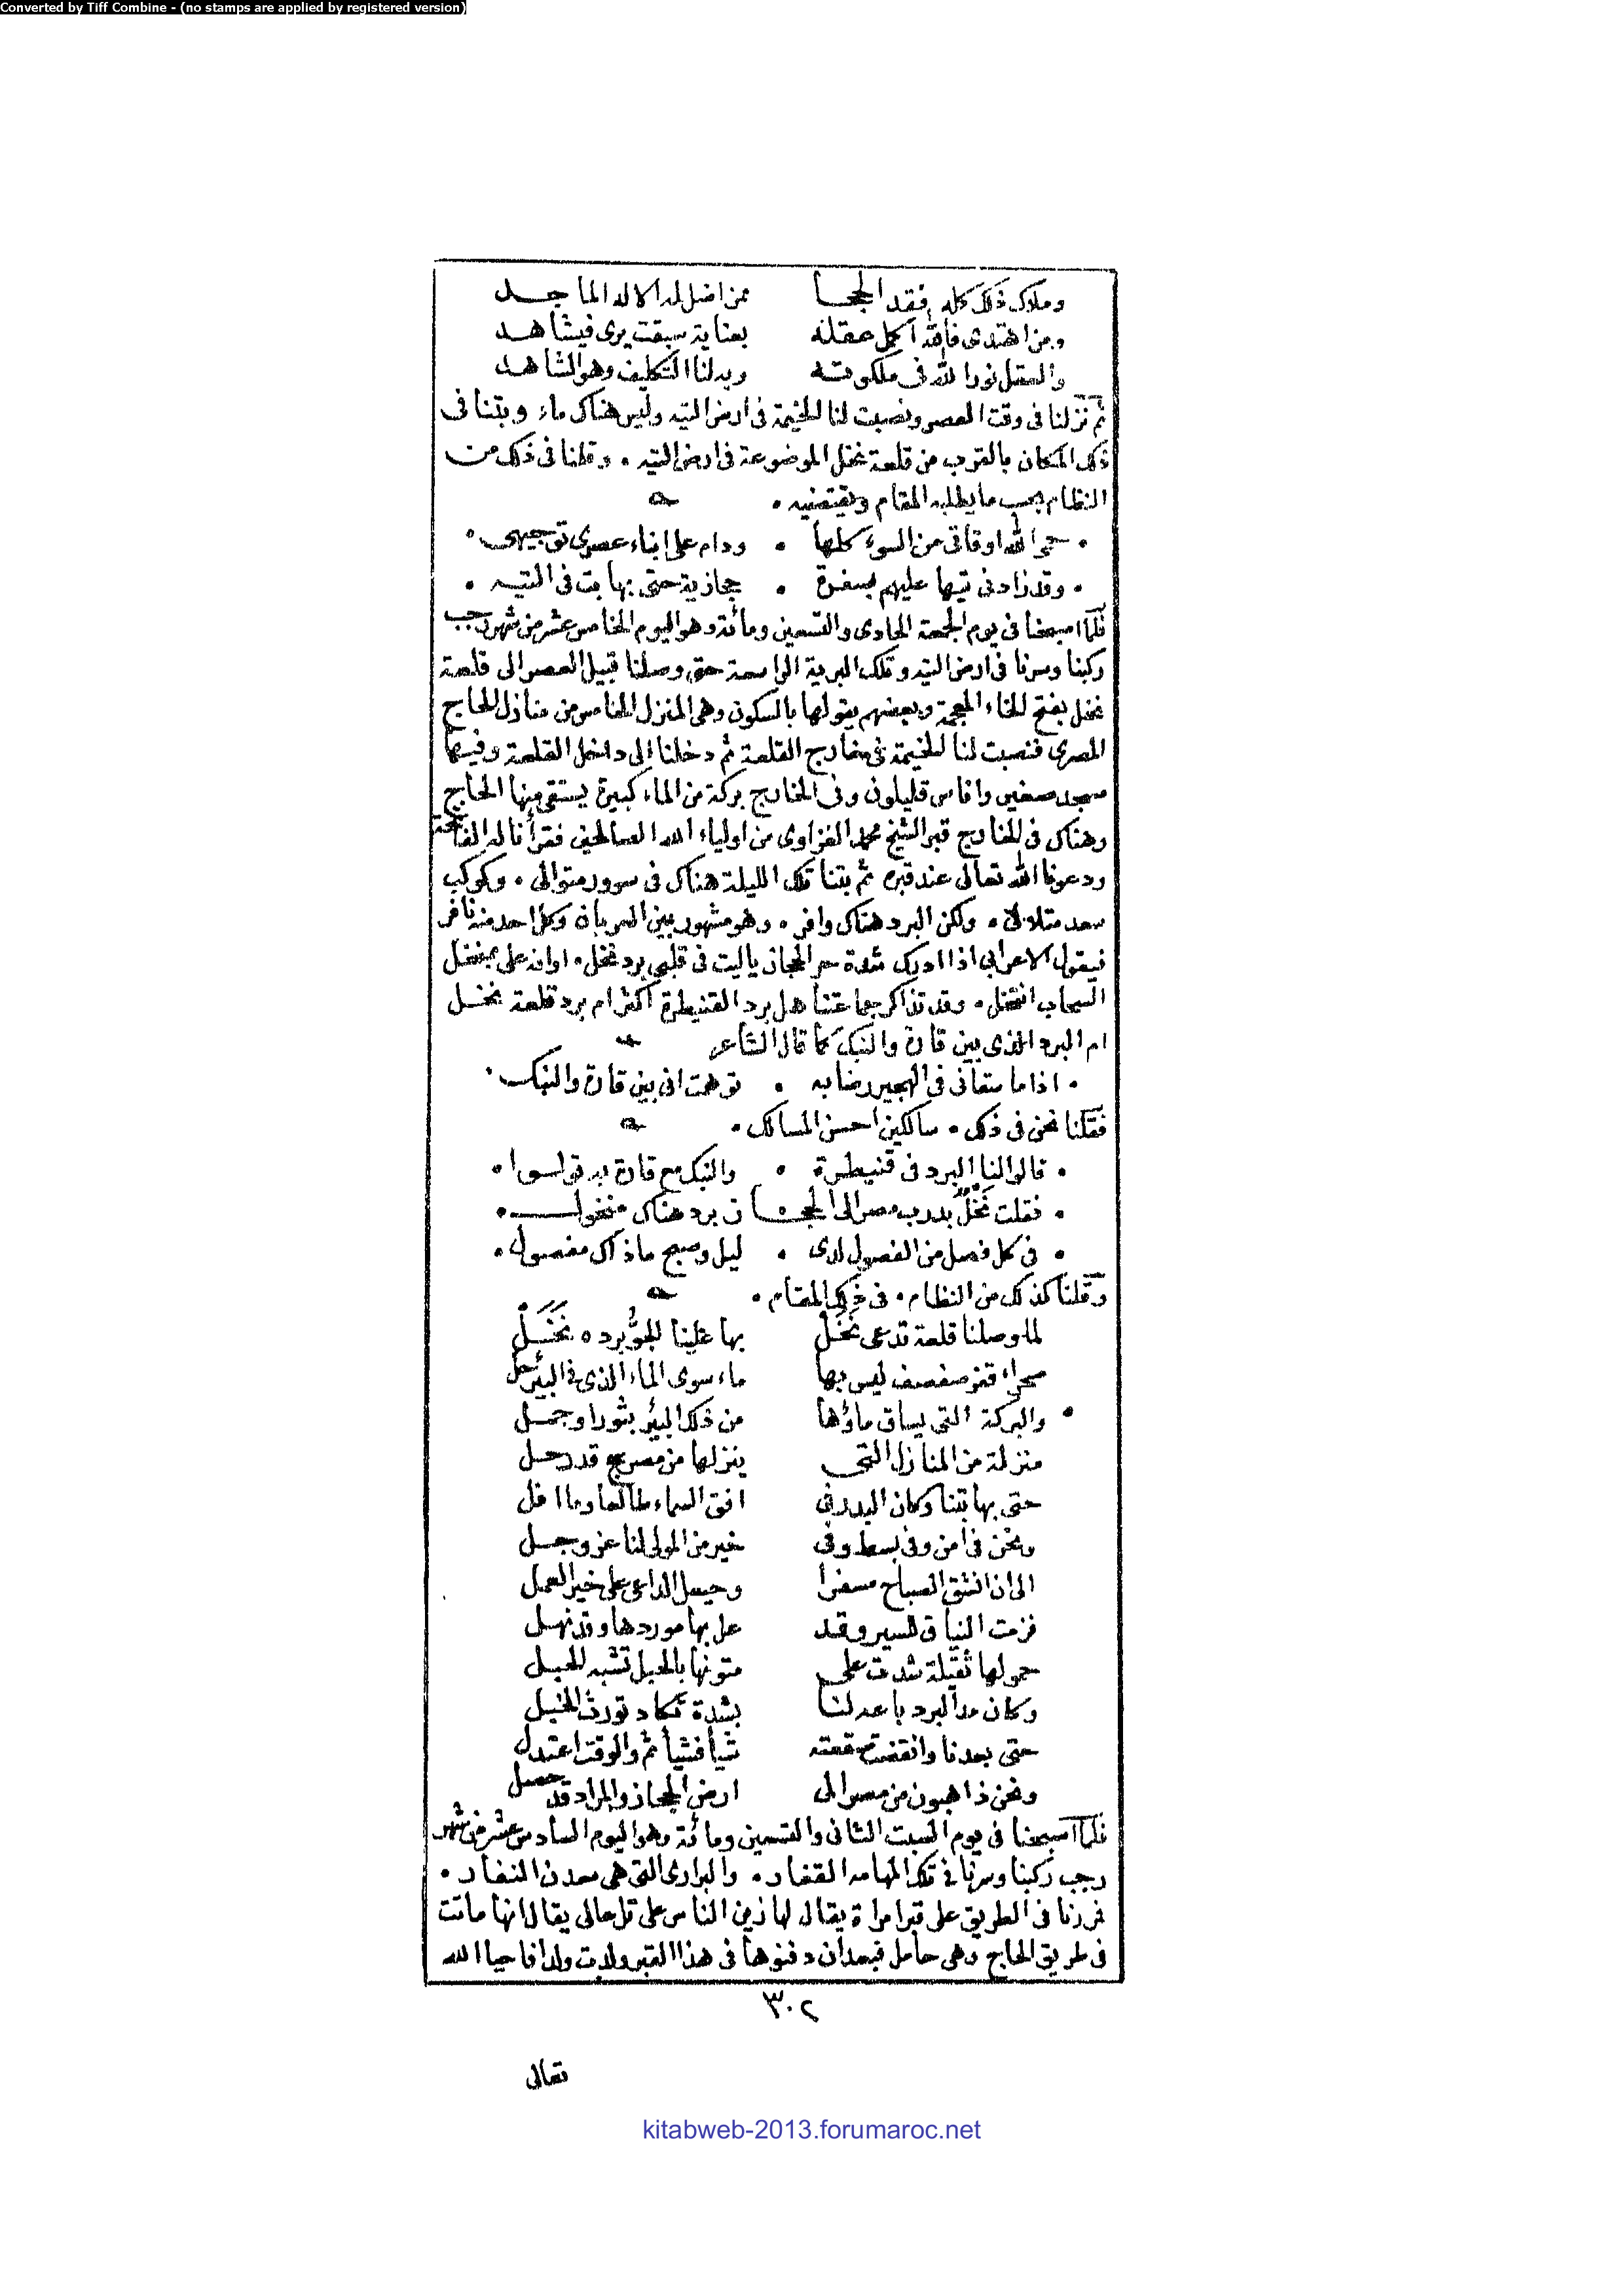 Converted by Tiff Combine - (no stamps are applied by registered version)
وملاك ذلك كله فقد الحجا ممن اضل له الاله الماجد
ومن اهتدى فالله اكمل عقله بعناية سبقت يرى فيشاهد
والعقل نور الله فى ملكوته وبه لنا التكليف وهو الشاهد
ثم نزلنا فى وقت العصر ونصبت لنا الخيمة فى ارض التيه وليس هناك ماء وبتنا فى
ذلك المكان بالقرب من قلعة نخل الموضوعة فى ارض التيه . وقلنا فى ذلك من
النظام بحسب ما يطلبه المقام ويقتضيه .
. حمى الله اوقاتى من السوء كلها . ودام على ابناء عصرى توجيهى .
. وقد زادنى تيها عليهم بسفرة . حجازية حتى بها بت فى التيه .
فلما اصبحنا فى يوم الجمعة الحادى والتسعين ومائة وهو اليوم الخامس عشر من شهر رجب
ركبنا وسرنا فى ارض التيه وتلك البرية الواسعة حتى وصلنا قبيل العصر الى قلعة
نخل بفتح الخاء المعجمة وبعضهم يقولها بالسكون وهى المنزل الخامس من منازل الحاج
المصرى فنصبت لنا الخيمة فى خارج القلعة ثم دخلنا الى داخل القلعة وفيها
مسجد صغير واناس قليلون وفى الخارج بركة من الماء كبيرة يستقى منها الحاج
وهناك فى الخارج قبر الشيخ محمد الغزاوى من اولياء الله الصالحين فقرأنا له الفاتحة
ودعونا الله تعالى عند قبره ثم بتنا تلك الليلة هناك فى سرور متوالى . وكوكب
سعد متلالئ . ولكن البرد هناك وافر . وهو مشهور بين العربان وكل احد منه نافر
فيقول الاعرابى اذا ادركه شدة حر الحجاز ياليت فى قلبى برد نخل . او انه على بمنخل
السحاب انتخل . وقد تذاكر جماعتنا هل برد القنيطرة اكثر ام برد قلعة نخل
ام البرد الذى بين قارة والنبك كما قال الشاعر
. اذا ما سقانى فى الهجير رضابه . توهمت انى بين قارة والنبك .
فقلنا نحن فى ذلك . سالكين احسن المسالك .
. قالوا لنا البرد فى قنيطرة . والنبك مع قارة به قولوا .
. فقلت نخل بدرب مصر الى الحجاز برد هناك منخول .
. فى كل فصل من الفصول لدى . ليل وصبح ما ذاك مفصول .
وقلنا كذلك من النظام . فى ذلك المقام .
لما وصلنا قلعة تدعى نخل بها علينا الجو برده نخل
صحراء قفر صفصف ليس بها ماء سوى الماء الذى فى البئر حل
. والبركة التى يساق ماؤها من ذلك البئر بثور او جمل
منزلة من المنازل التى ينزلها من مصر حج قد رحل
حتى بها بتنا وكان البدر فى افق السماء طالعا وما افل
ونحن فى امن وفى بسط وفى خير من المولى لنا عز وجل
الى ان انشق الصباح مسفرا وحيعل الداعى على خير العمل
فزمت النياق للسير وقد عل بها موردها وقد نهل
حمولها ثقيلة شدت على متونها بالحبل تشبه الجبل
وكان مد البرد باعه لنا بشدة تكاد تورث الخبل
حتى بعدنا وانقضت بقعته شيأ فشيأ ثم والوقت اعتدل
ونحن ذاهبون من مصر الى ارض الحجاز والمراد قد حصل
فلما اصبحنا فى يوم السبت الثانى والتسعين ومائة وهو اليوم السادس عشر من شهر
رجب ركبنا وسرنا فى تلك المهامه القفار . والبرارى التى هى معدن النفار .
فمررنا فى الطريق على قبر امراة يقال لها زين الناس على تل عالى يقال انها ماتت
فى طريق الحاج وهى حامل فبعد ان دفنوها فى هذا القبر ولدت ولدا فاحيا الله
٣٠٢
تعالى
kitabweb-2013.forumaroc.net